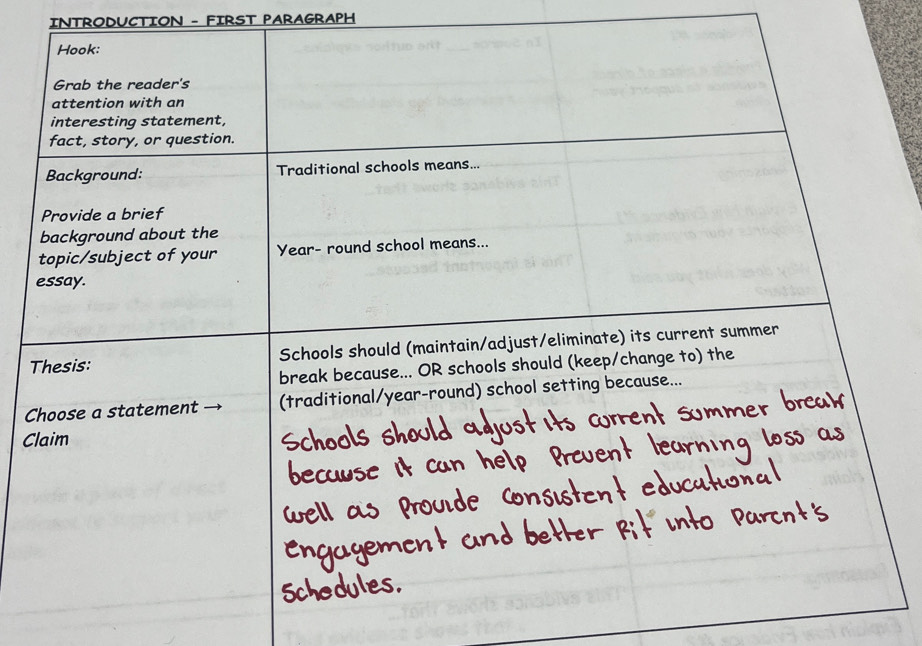 INTRODUCTION - FIRST PARAGRAPH
Hook:
Grab the reader's
attention with an
interesting statement,
fact, story, or question.
Background:
Provide a brief
background about the
topic/subject of your
essay.
Traditional schools means...
Year- round school means...
Thesis:
Choose a statement →
Claim
Schools should (maintain/adjust/eliminate) its current summer
break because... OR schools should (keep/change to) the
(traditional/year-round) school setting because...
Schools should adjust its current summer break
because it can help prevent learning loss as
well as provide consistent educational
engagement and better fit into parent's
schedules.